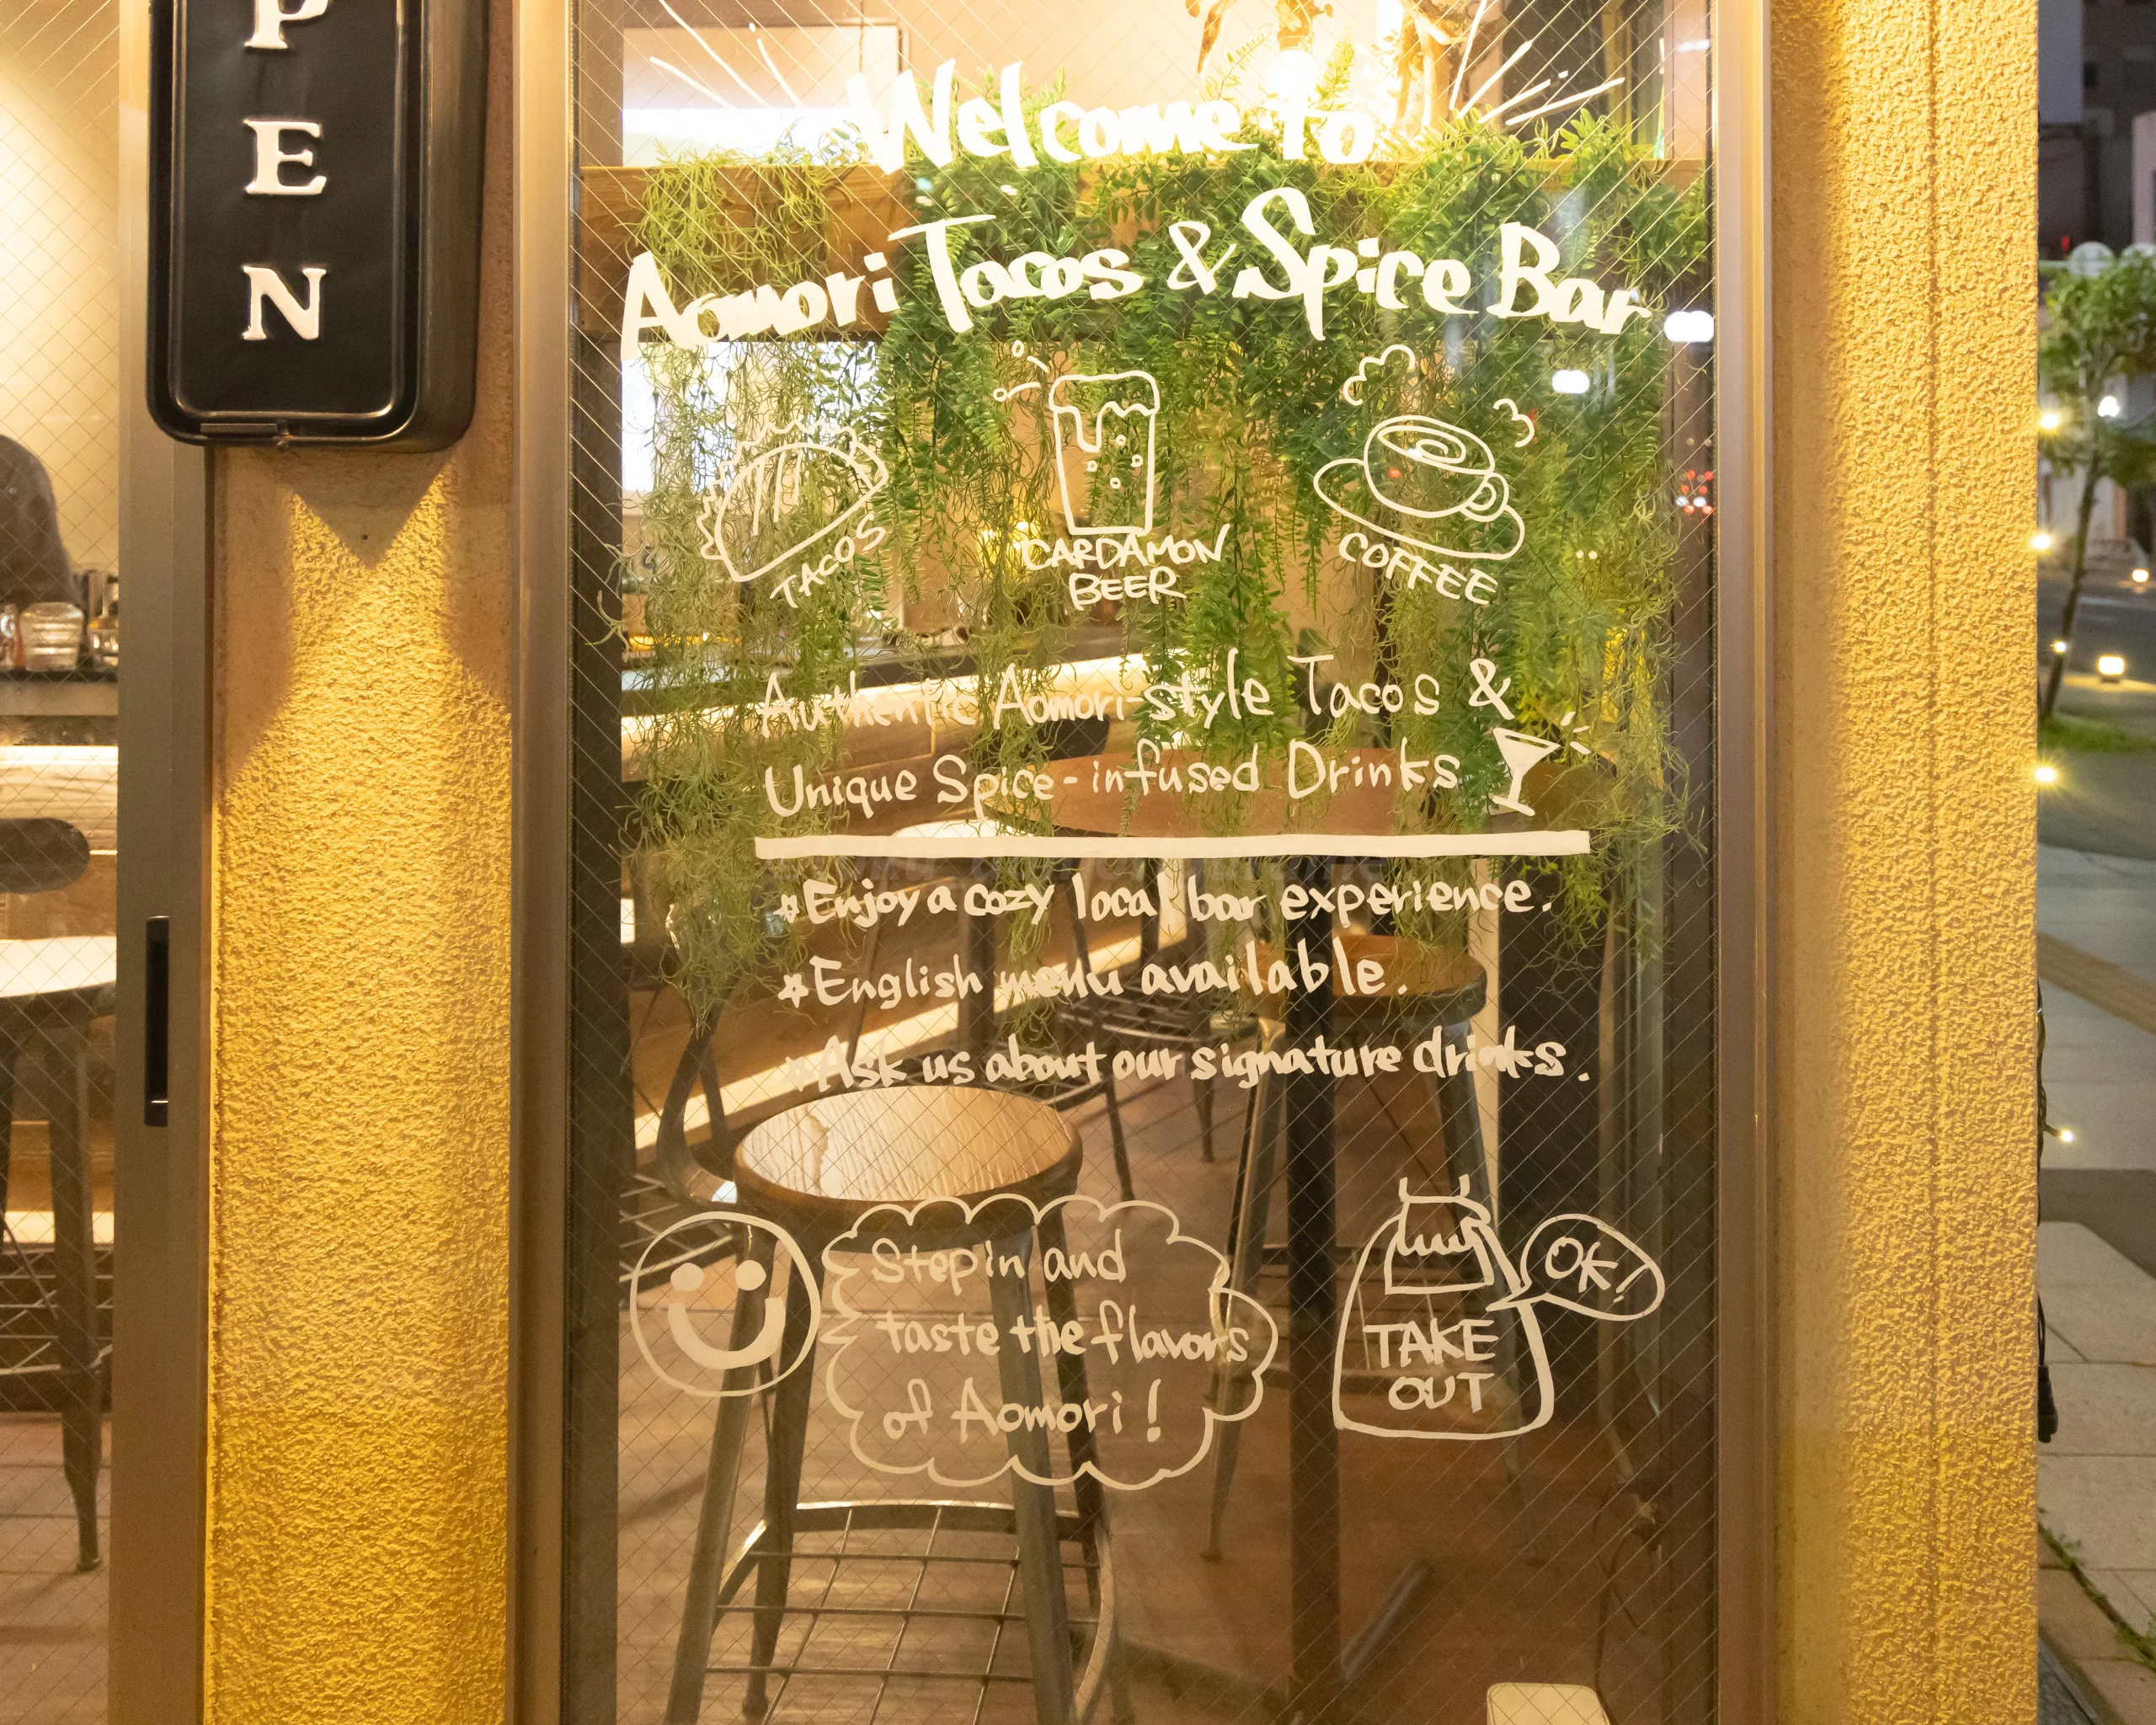 PEN
Welcome to
Aomori Tacos & Spice Bar
TACOS
CARDAMON
BEER
COFFEE
Authentic Aomori-style Tacos &
Unique Spice-infused Drinks
☆Enjoy a cozy local bar experience.
☆English menu available.
☆Ask us about our signature drinks.
Step in and
taste the flavors
of Aomori!
OK!
TAKE
OUT